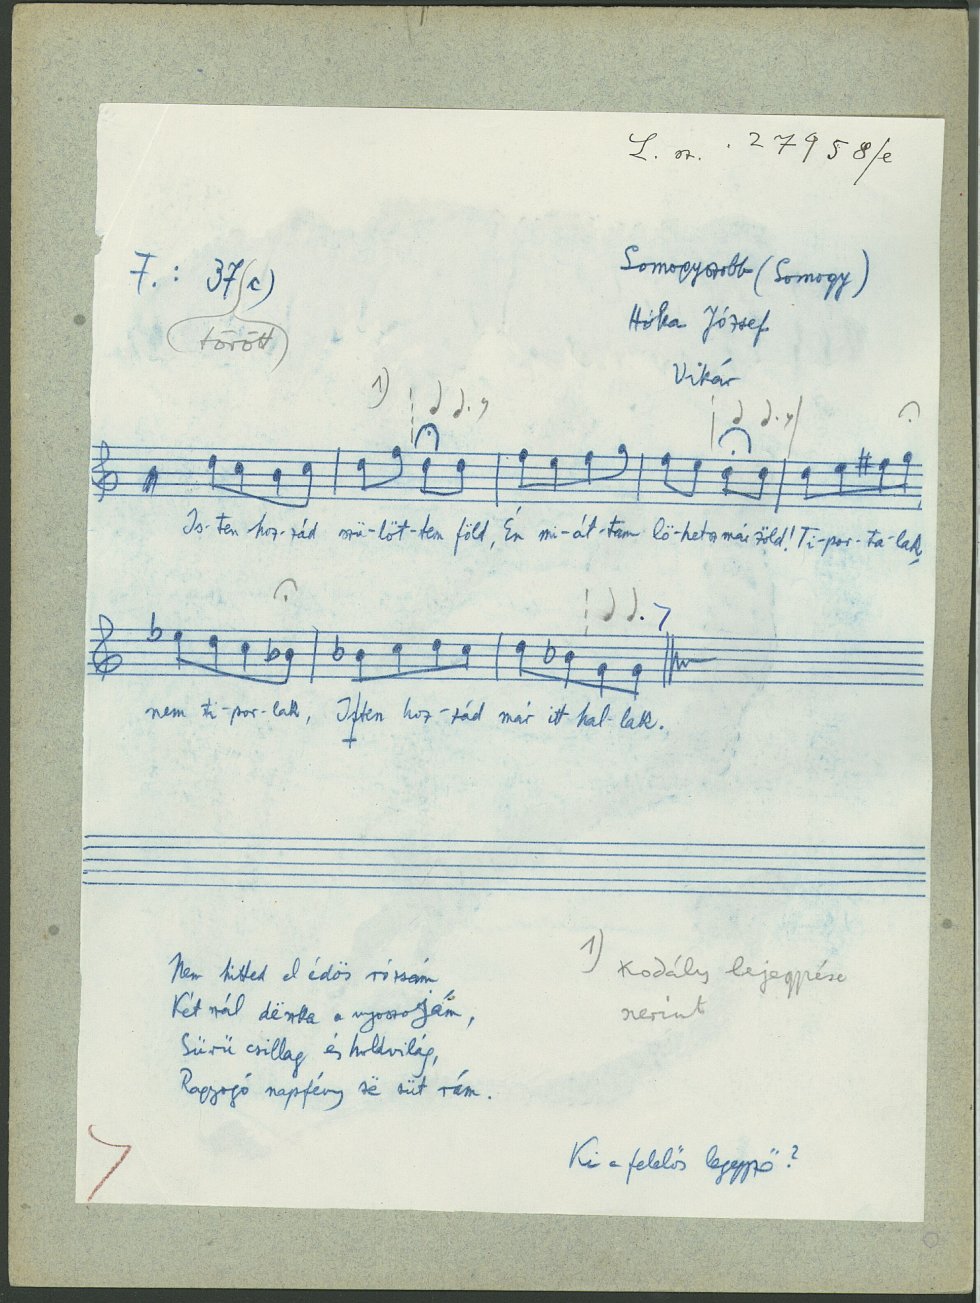 L. sz. 27958/e
F.: 37(c)
törött
Somogyszobb (Somogy)
Hóka József
Vikár
1)
Is-ten hoz-zád szü-löt-tem föld, Én mi-át-tam lö-hetsz már zöld! Ti-por-ta-lak,
nem ti-por-lak, Isten hoz-zád már itt hal-lak.
Nem hitted el édös rózsám
Két szál dëszka a nyoszojám,
Sürü csillag és holdvilág,
Ragyogó napfény së süt rám.
1) Kodály lejegyzése
szerint
Ki a felelős lejegyző?